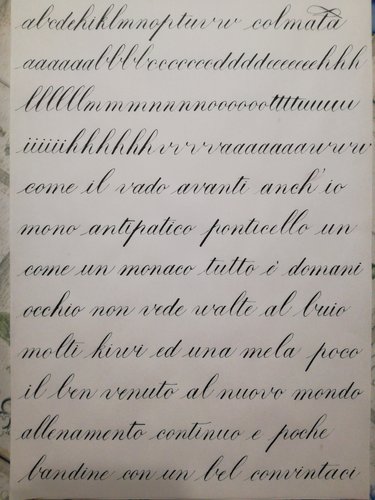 abcdehiklmnoptuvw colmata
aaaaaabbbbcccccccddddeeeeeehhh
llllllmmmnnnnoooooottttuuuu
iiiiiihhhhhhvvvvaaaaaaawww
come il vado avanti anch'io
mono antipatico ponticello un
come un monaco tutto i domani
occhio non vede walte al buio
molti kiwi ed una mela poco
il ben venuto al nuovo mondo
allenamento continuo e poche
bandine con un bel convintaci